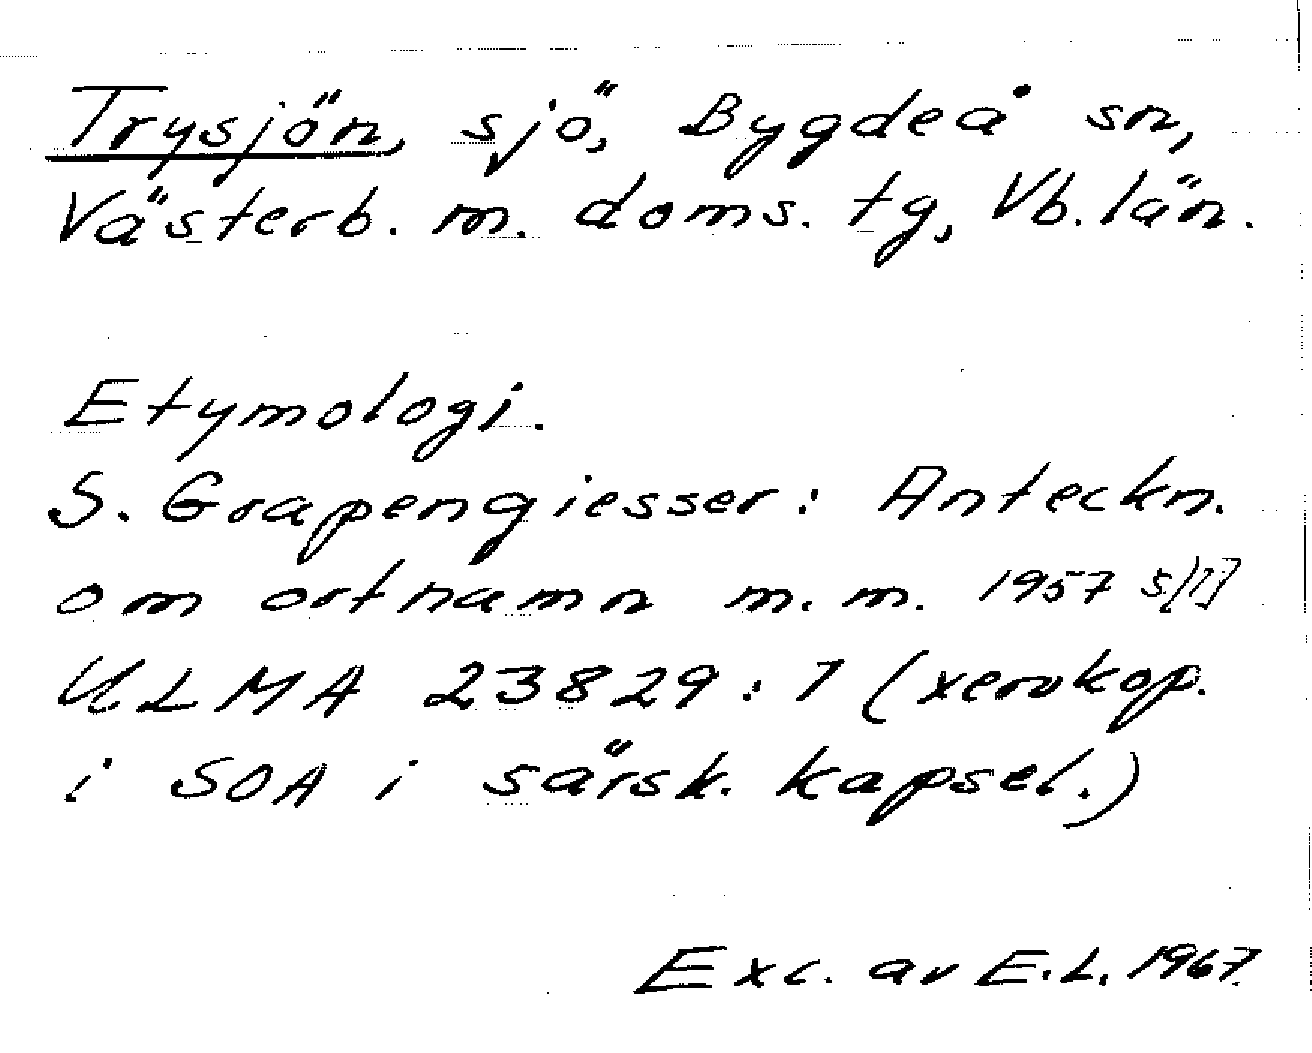 Trysjön, sjö, Bygdeå sn,
Västerb. m. doms. tg, Vb. län.
Etymologi.
S. Grapengiesser: Anteckn.
om ortnamn m. m. 1957 s. [1]
ULMA 23829:1 (xerokop.
i SOA i särsk. kapsel.)
Exc. av E.L. 1967.